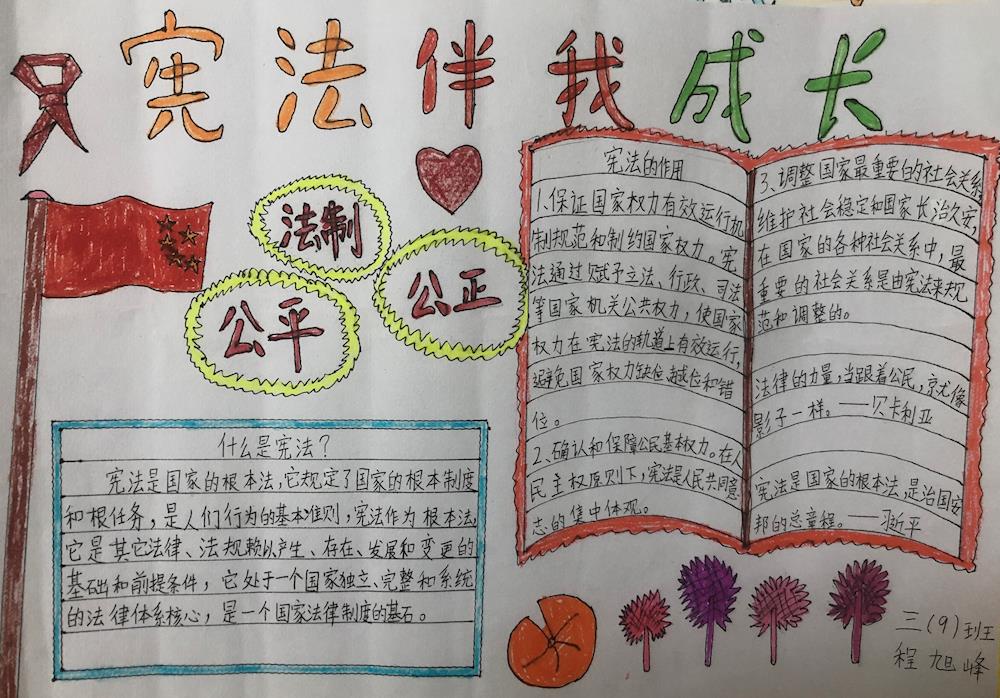 宪法伴我成长
法制
公平
公正
什么是宪法?
宪法是国家的根本法,它规定了国家的根本制度
和根任务,是人们行为的基本准则,宪法作为根本法,
它是其它法律、法规赖以产生、存在、发展和变更的
基础和前提条件,它处于一个国家独立、完整和系统
的法律体系核心,是一个国家法律制度的基石。
宪法的作用
1.保证国家权力有效运行机
制规范和制约国家权力。宪
法通过赋予立法、行政、司法
等国家机关公共权力,使国家
权力在宪法的轨道上有效运行,
避免国家权力缺位、越位和错
位。
2、确认和保障公民基本权力。在人
民主权原则下,宪法是人民共同意
志的集中体观。
3、调整国家最重要的社会关系
维护社会稳定和国家长治久安,
在国家的各种社会关系中,最
重要的社会关系是由宪法来规
范和调整的。
法律的力量,当跟着公民,京尤像
影子一样。——贝卡利亚
宪法是国家的根本法,是治国安
邦的总章程。——习近平
三(9)班
程旭峰